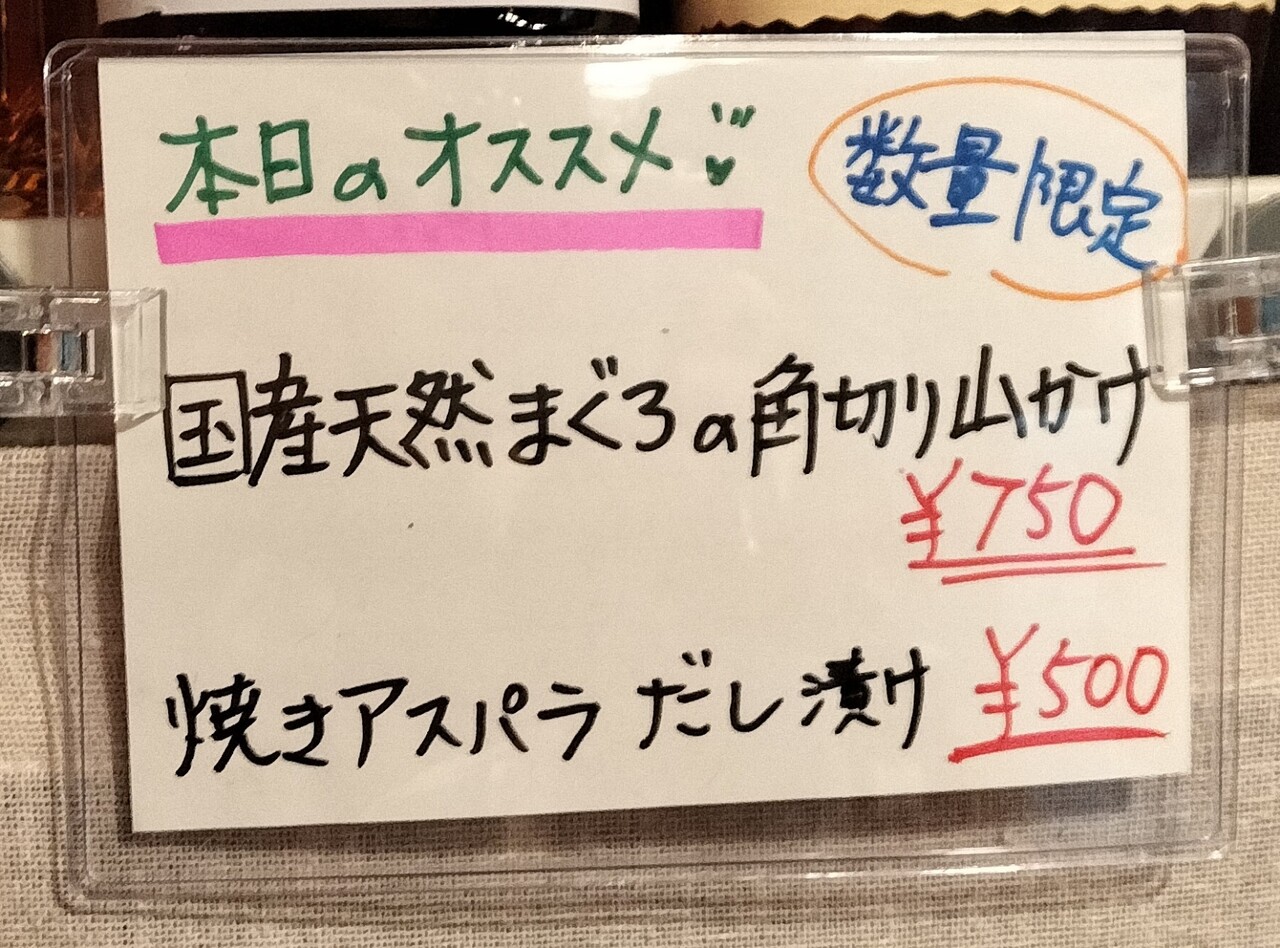 本日のオススメ
数量限定
国産天然まぐろの角切り山かけ
¥750
焼きアスパラ だし漬け ¥500